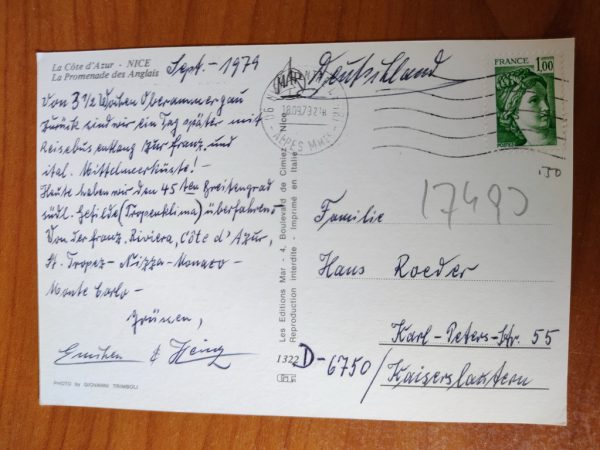 La Côte d'Azur - NICE
La Promenade des Anglais
Sept.- 1979
Von 3 1/2 Wochen Oberammergau
zurück sind wir ein Tag später mit
Reisebus entlang zur franz. und
ital. Mittelmeerküste!-
Heute haben wir den 45ten Breitengrad
südl. Gefilde (Tropenklima) überfahren-
Von der franz. Riviera, Côte d'Azur,
St. Tropez- Nizza- Monaco-
Monte Carlo-
Grüßen,
& Heinz
PHOTO by GIOVANNI TRIMBOLI
Les Editions Mar - 4, Boulevard de Cimiez - Nice
Reproduction interdite - Imprimé en Italie
MAR
1322
Deutschland
06 N
18.09.79.21H
ALPES MARIT
FRANCE
1,00
POSTES
,50
17490
Familie
Hans Roeder
Karl-Peters-Str. 55
D-6750/
Kaiserslautern